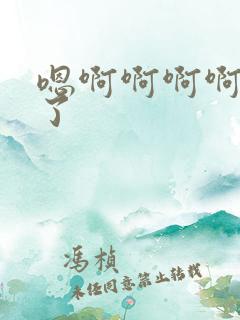 嗯啊啊啊啊
了
冯桢
未经同意禁止转载